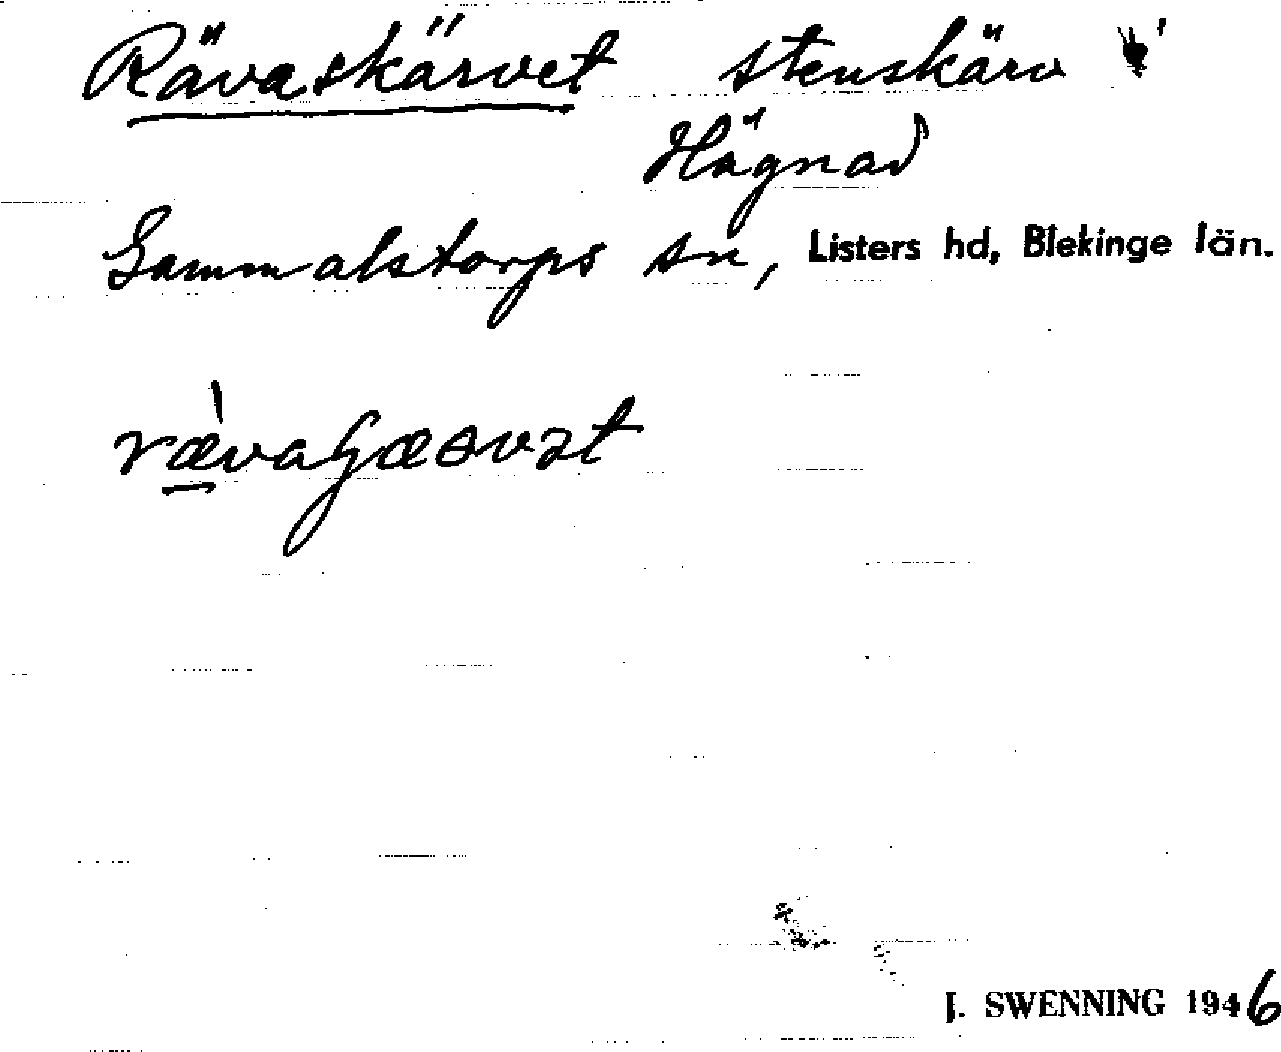 Rävaskärvet stenskärv i
Hägnad
Gammalstorps sn, Listers hd, Blekinge län.
J. SWENNING 1946